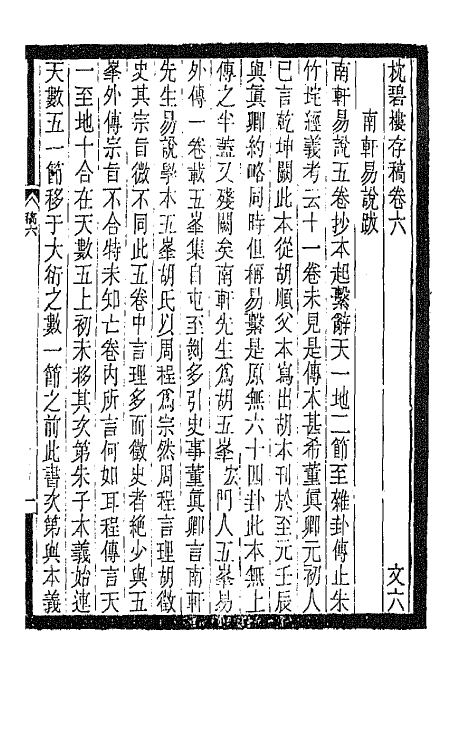 枕碧樓存稿卷六　　　　文六
南軒易說跋
南軒易說五卷抄本起繫辭天一地二節至雜卦傳止朱
竹垞經義考云十一卷未見是傳本甚希董真卿元初人
已言乾坤闕此本從胡順父本寫出胡本刊於至元壬辰
與真卿約略同時但稱易繫是原無六十四卦此本無上
傳之半蓋又殘闕矣南軒先生爲胡五峯宏門人五峯易
外傳一卷載五峯集自屯至剝多引史事董真卿言南軒
先生易說學本五峯胡氏以周程爲宗然周程言理胡徵
史其宗旨微不同此五卷中言理多而徵史者絶少與五
峯外傳宗旨不合特未知亡卷內所言何如耳程傳言天
一至地十合在天數五上初未移其次第朱子本義始連
天數五一節移于大衍之數一節之前此書次第與本義
稿六
一